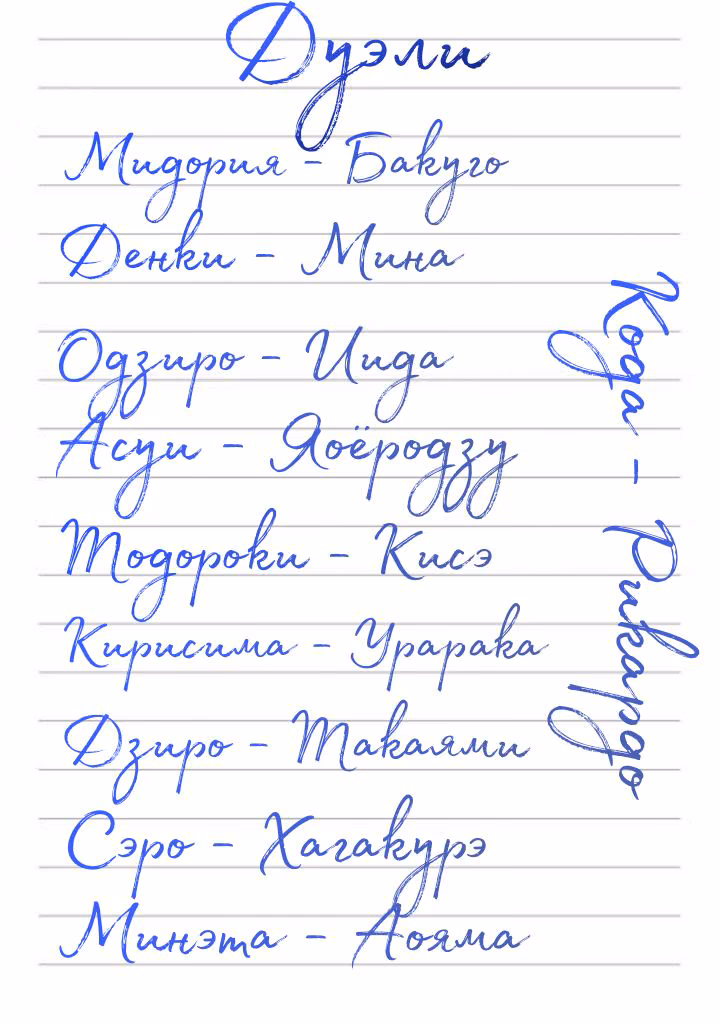 Дуэли
Мидория - Бакуго
Денки - Мина
Одзиро - Иида
Асуи - Яоёродзу
Тодороки - Кисэ
Кирисима - Урарака
Дзиро - Такаями
Сэро - Хагакурэ
Минэта - Аояма
Кода - Рикардо